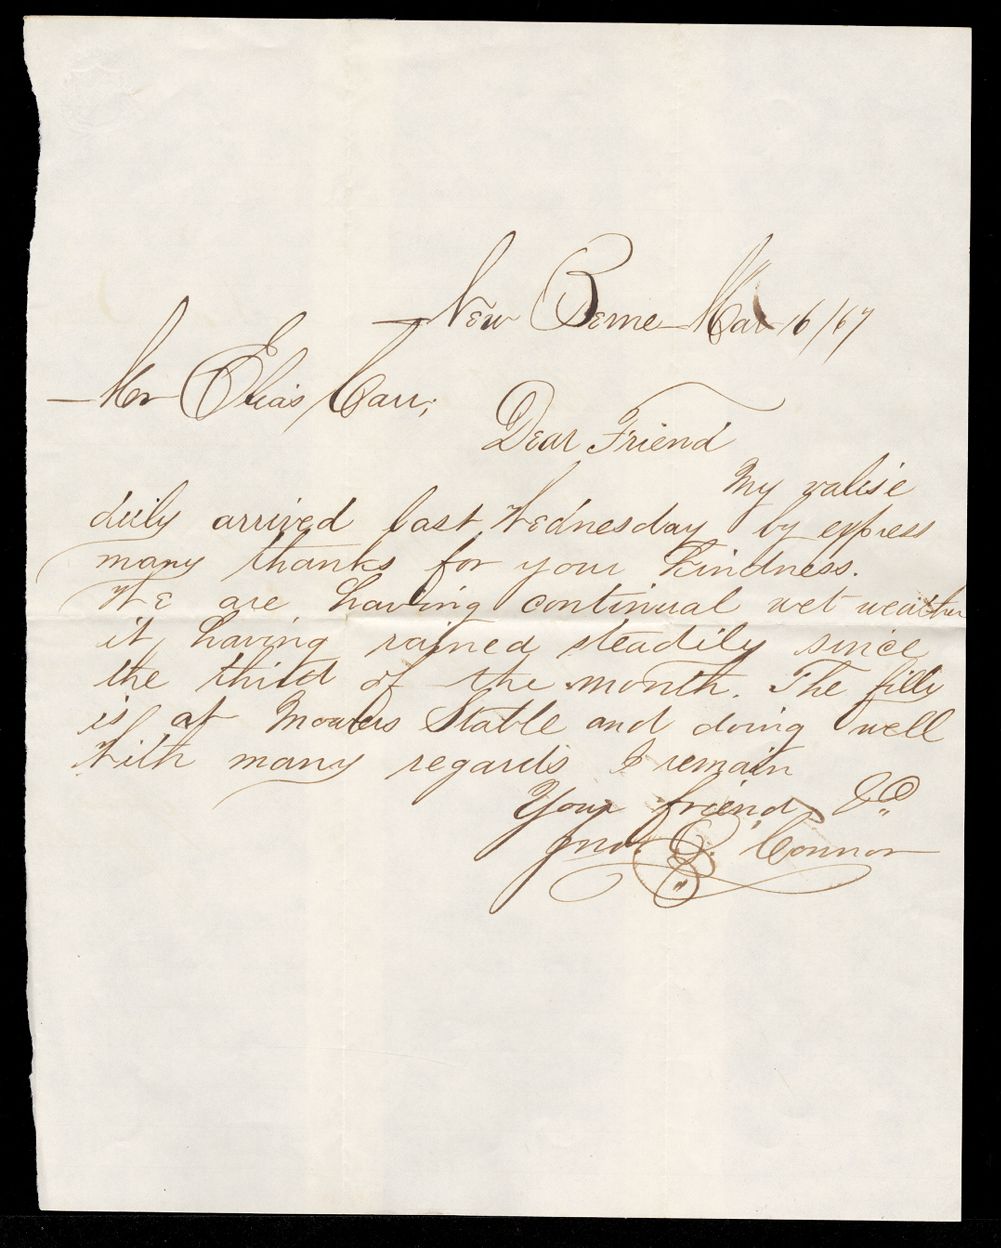 New Berne Mar 16/67
Mr Elias Carr;
Dear Friend
My valise
duly arrived last Wednesday by express
many thanks for your kindness.
We are having continual wet weather
it having rained steadily since
the third of the month. The filly
is at Stable and doing well
With many regards I remain
Your friend &c
Jno. O'Connor